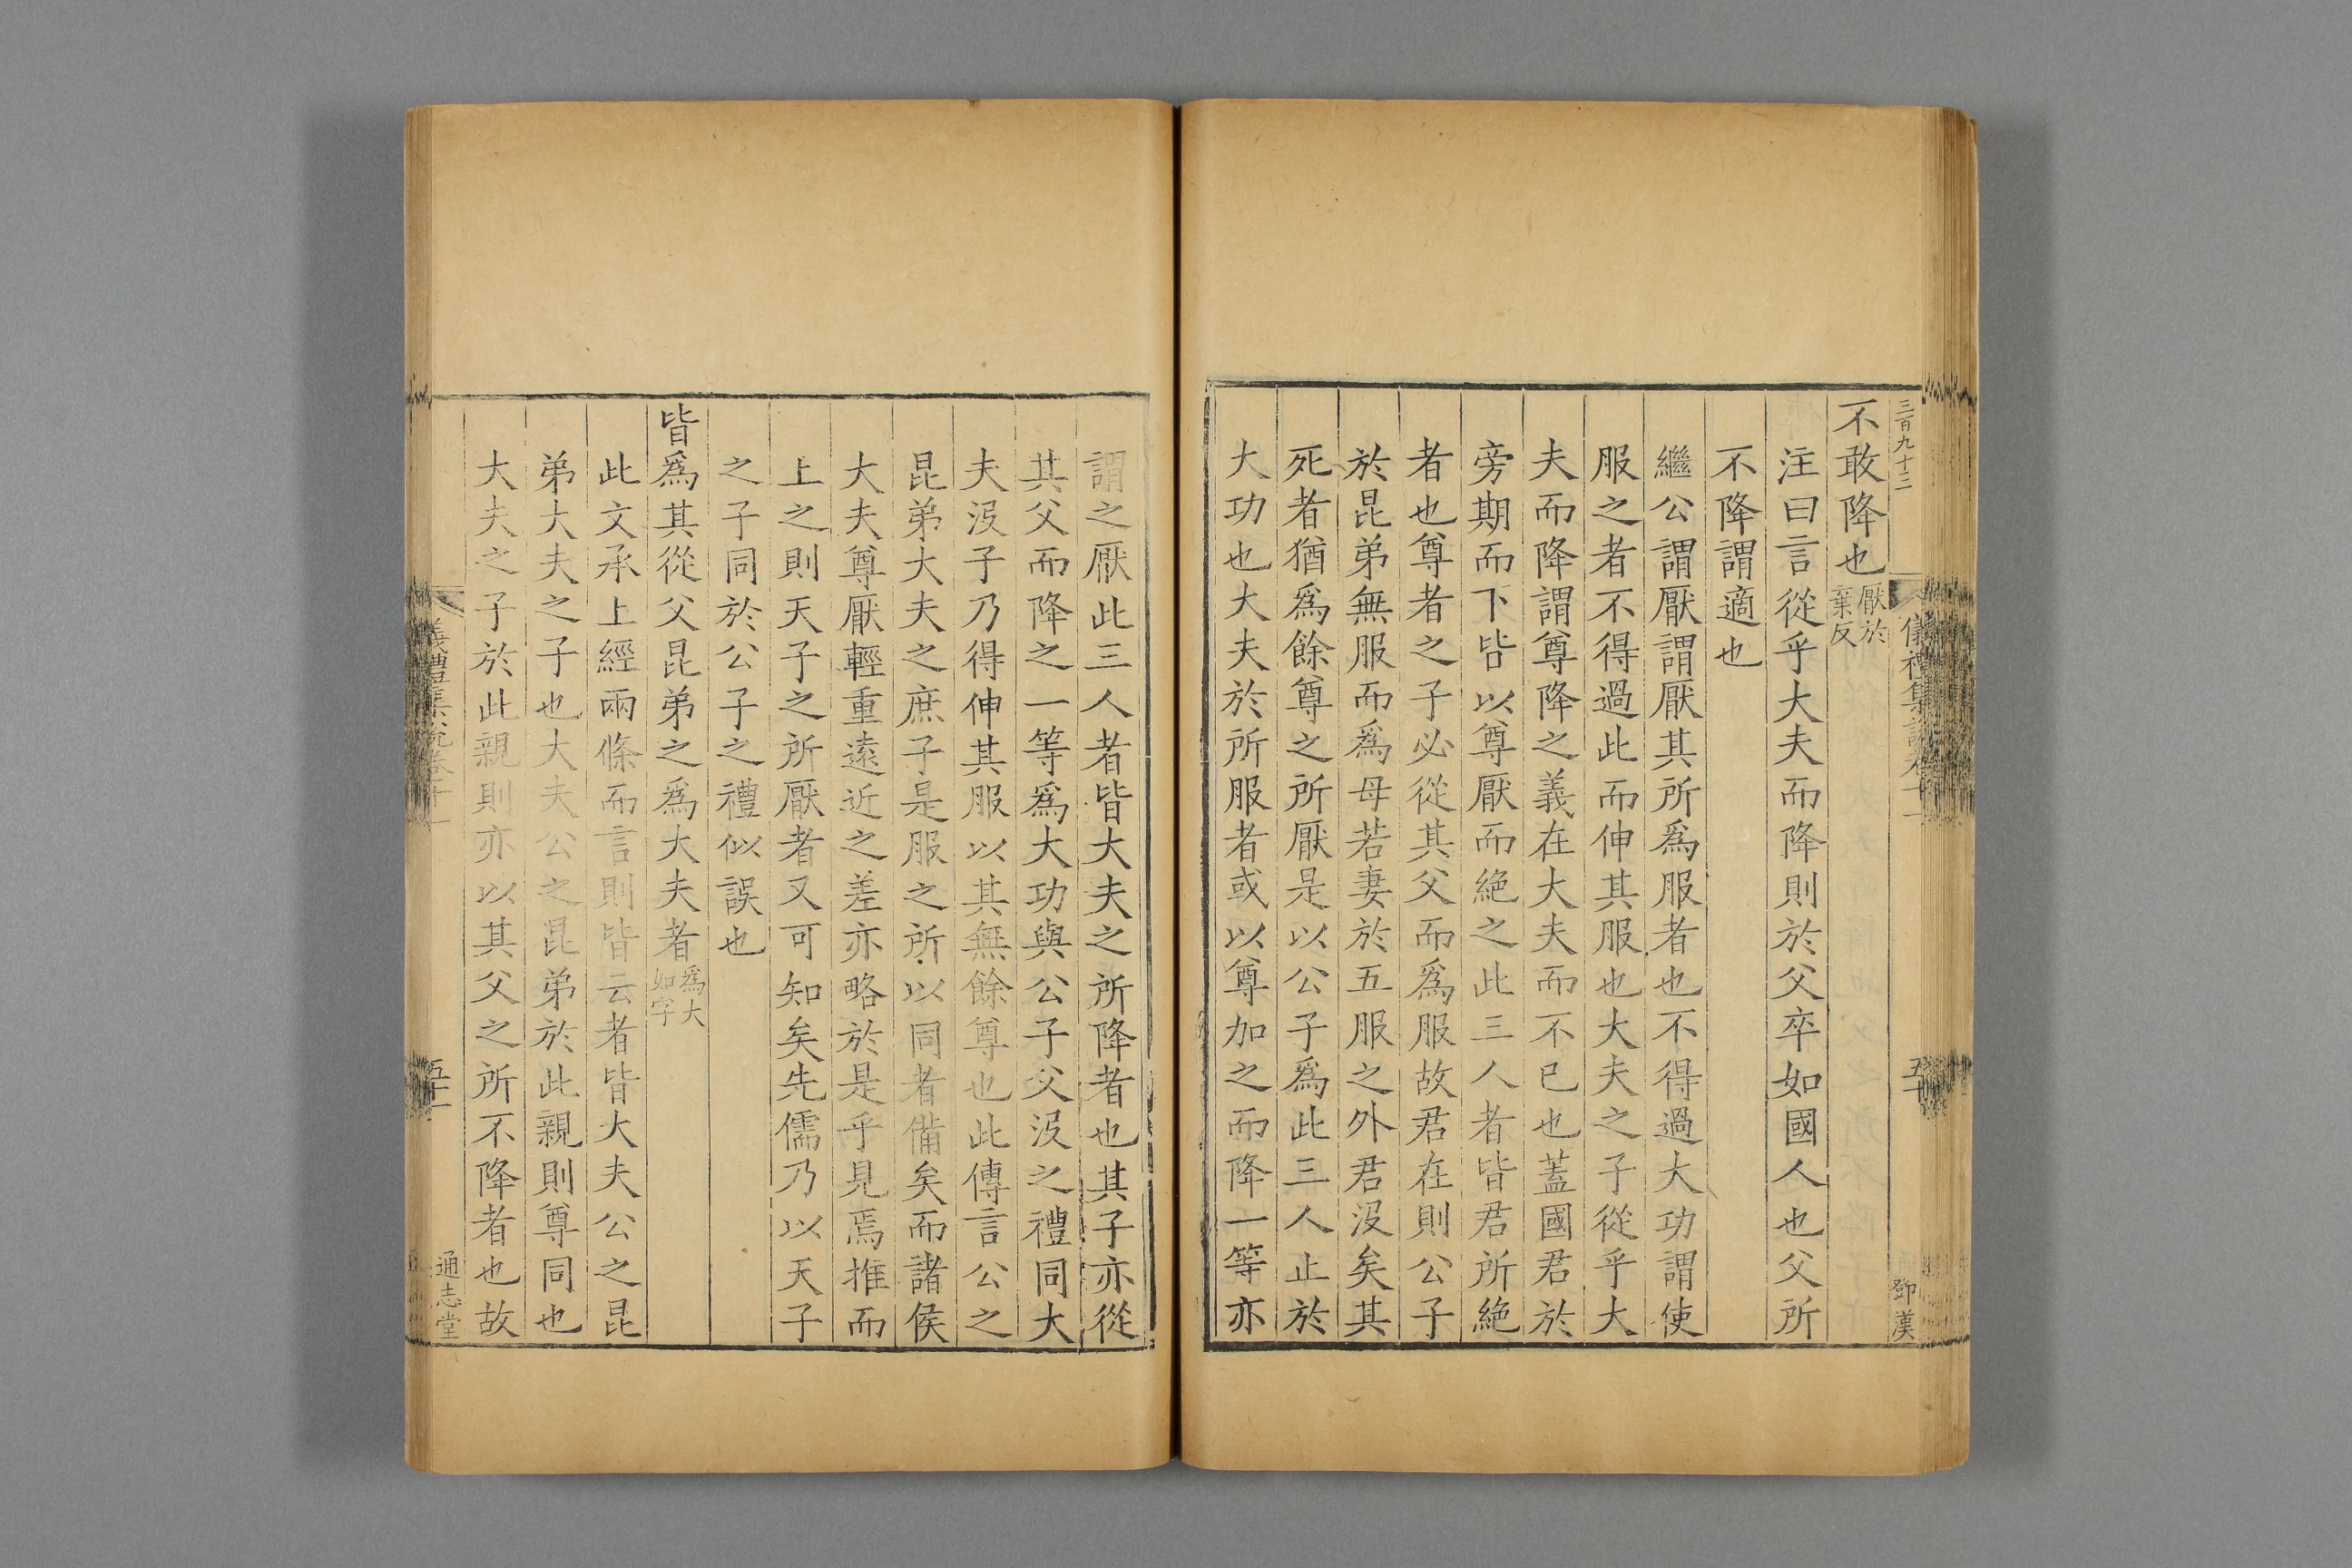 三百九十三
儀禮集說卷十一
五十
鄧漢
不敢降也厭於葉反
注曰言從乎大夫而降則於父卒如國人也父所
不降謂適也
繼公謂厭謂厭其所為服者也不得過大功謂使
服之者不得過此而伸其服也大夫之子從乎大
夫而降謂尊降之義在大夫而不已也蓋國君於
旁期而下皆以尊厭而絶之此三人者皆君所絶
者也尊者之子必從其父而為服故君在則公子
於昆弟無服而為母若妻於五服之外君沒矣其
死者猶為餘尊之所厭是以公子為此三人止於
大功也大夫於所服者或以尊加之而降一等亦
謂之厭此三人者皆大夫之所降者也其子亦從
其父而降之一等為大功與公子父沒之禮同大
夫沒子乃得伸其服以其無餘尊也此傳言公之
昆弟大夫之庶子是服之所以同者備矣而諸侯
大夫尊厭輕重遠近之差亦略於是乎見焉推而
上之則天子之所厭者又可知矣先儒乃以天子
之子同於公子之禮似誤也
皆為其從父昆弟之為大夫者為大如字
此文承上經兩條而言則皆云者皆大夫公之昆
弟大夫之子也大夫公之昆弟於此親則尊同也
大夫之子於此親則亦以其父之所不降者也故
儀禮集說卷十一
五十一
通志堂